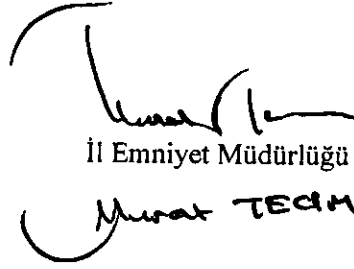 İl Emniyet Müdürlüğü
Murat TECİM